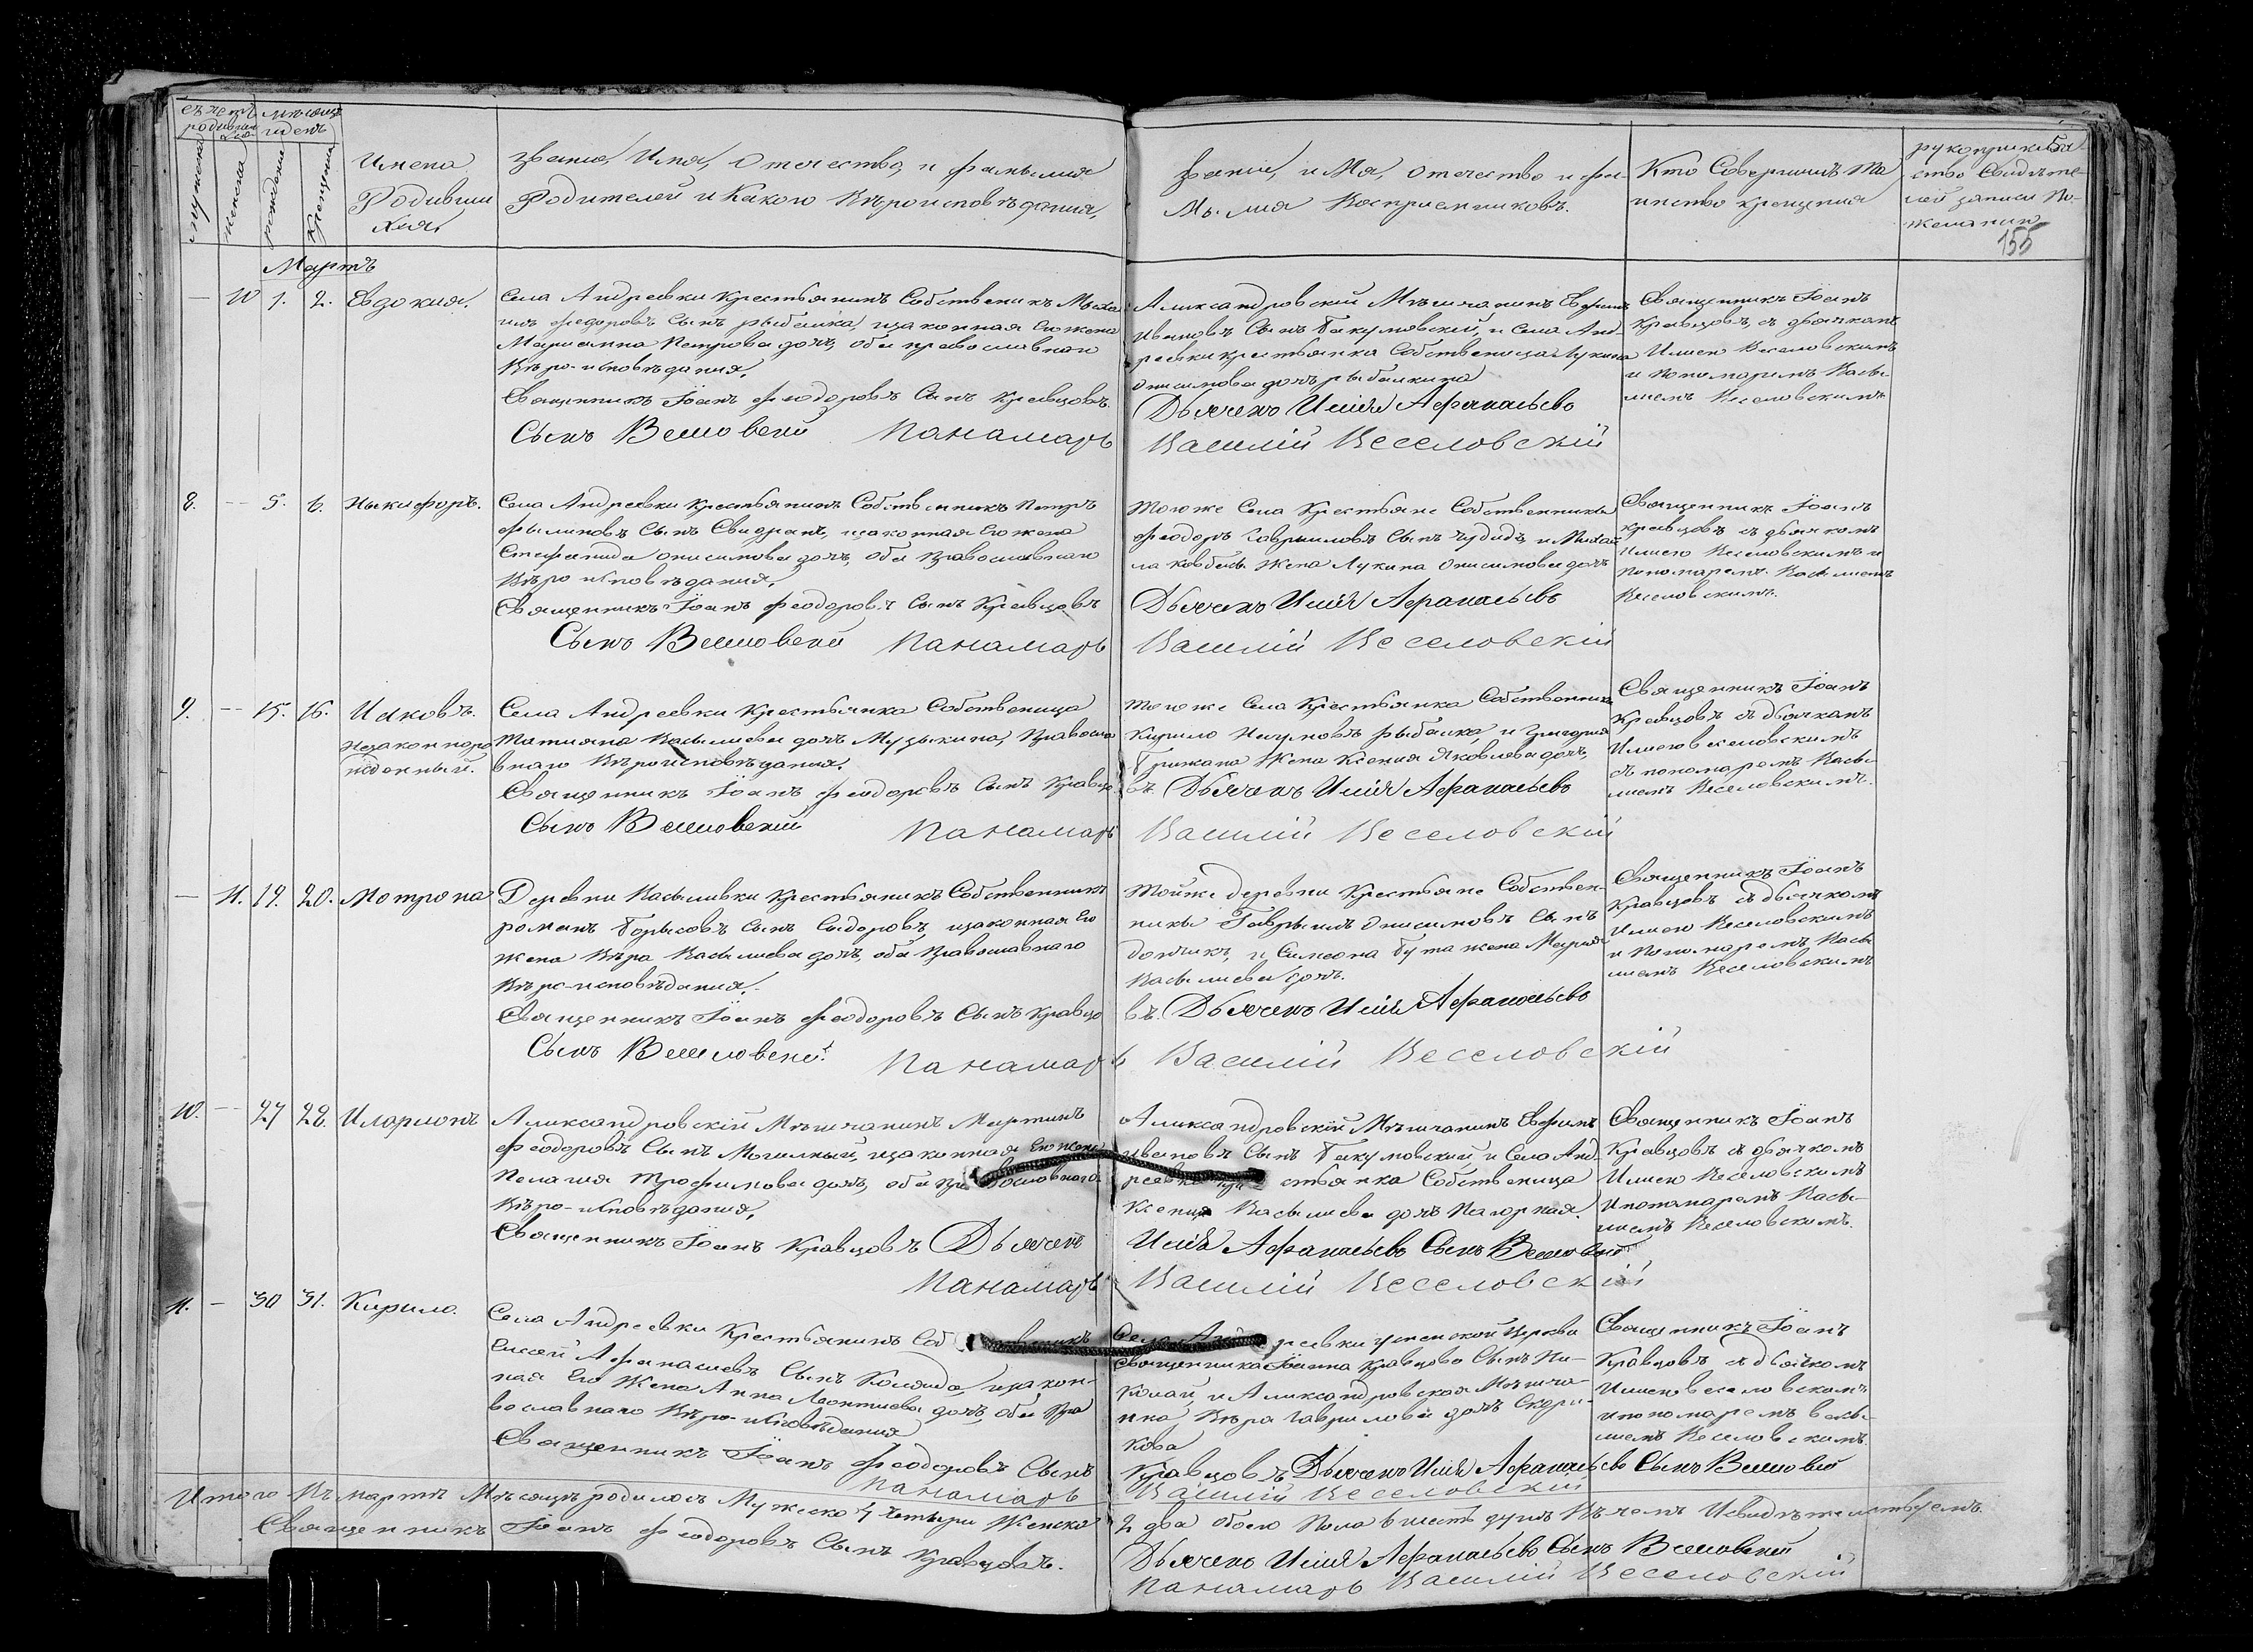 счетъ родившихся
мѣсяцъ и день
мужеска
женска
рождение
крещение
Имена Родивши хся,
Звание, Имя, Отечество, и фамылия
Родителей и Какого Вѣроисповѣдания,
Звание, и Мя, Отечество и фа-
Мылия Восприемниковъ.
Кто Совершилъ Та
инство крещения
рукоприклад
ство Свидѣте-
лей записи По-
желанию
5
155
Мартъ
— 10 1. 2. Евдокия.
Села Андреевки Крестьянинъ Собственикъ Миха
илъ Федоровъ Сынъ рыбалка, изаконная Его жена
Марианна Петрова дочь, оба православнаго
Вѣро-исповѣдания,
Священникъ Іоанъ Феодоровъ Сынъ Кравцовъ.
Сынъ Веселовскій Панамарь
Алиександровский Мѣщанинъ Евфимъ
Ивановъ Сынъ Бакумовский, и Села Анд-
реевки крестьянка Собственица Лукия
Онисимова дочь рыбалкина
Дьячекъ Илія Афанасьевъ
Василій Веселовскій
Священникъ Іоанъ
Кравцовъ, съ дьячкомъ
Илиею Веселовскимъ
и Пономаремъ Васы-
лиемъ Веселовскимъ
8. — 5. 6. Ныкифоръ.
Села Андреевки Крестьянинъ Собственникъ Петръ
Фылиповъ Сынъ Свидранъ, изаконная Его жена
Стефанида Онисимова дочь, оба Православнаго
Вѣро исповѣдания,
Священникъ Іоанъ Феодоровъ Сынъ Кравцовъ
Сынъ Веселовскій Панамарь
Тогоже Села Крестьяне Собственники
Феодоръ Гавриловъ Сынъ и Михай
ла Жена Лукина Онисимова дочь
Дьячекъ Илія Афанасьевъ
Василій Веселовскій
Священникъ Іоанъ
Кравцовъ съ дьячкомъ
Илиею Веселовскимъ и
Пономаремъ Васылиемъ
Веселовскимъ.
9. — 15. 16. Иаковъ.
Незаконноро
жденный.
Села Андреевки Крестьянка Собственица
Татияна Васылиева дочь Музыкина, Правосла
внаго Вѣроисповѣдания,
Священникъ Іоанъ Феодоровъ Сынъ Кравцо
Сынъ Веселовскій Панамарь
Тогоже Села Крестьянка Собственника
Кирило Наумовъ рыбалка, и Григория
Жена Ксения Яковлева дочь,
въ. Дьячекъ Илія Афанасьевъ
Василій Веселовскій
Священникъ Іоанъ
Кравцовъ съ дьячкомъ
Илиею веселовскимъ
съ пономаремъ Васы-
лиемъ Веселовскимъ.
— 11. 19. 20. Мотрона
Деревни Васыливки Крестьянинъ Собственникъ
романъ Борысовъ Сынъ Сидоровъ, изаконная Его
жена Вѣра Васылиева дочь, оба Православнаго
Вѣро-исповѣдания,
Священникъ Іоанъ Феодоровъ Сынъ Кравцо
Сынъ Веселовскій. Панамарь
Тойже деревни Крестьяне Собствен-
ники Гаврыилъ Онисимовъ Сынъ
и Симеона Бута жена Мария
Васылиева дочь.
въ. Дьячекъ Илія Афанасьевъ
Василій Веселовскій
Священникъ Іоанъ
Кравцовъ съ дьячкомъ
Илиею Веселовскимъ
и Пономаремъ Васы
лиемъ Веселовскимъ
10. — 27 28. Иларионъ
Алиександровскій Мѣщанинъ Мартинъ
Феодоровъ Сынъ Могилный, изаконная Его жена
Пелагия Трофимова дочь, оба Православнаго
Вѣро-исповѣдания,
Священникъ Іоанъ Кравцовъ Дьячекъ
Панамарь
Алиександровскій Мѣщанинъ Евфимъ
Ивановъ Сынъ Бакумовский, и Села Анд
реевки крестьянка Собственица
Ксения Васылиева дочь Нагорная.
Илія Афанасьевъ Сынъ Веселовскій
Василій Веселовскій
Священникъ Іоанъ
Кравцовъ съ дьячкомъ
Илиею Веселовскимъ
Ипономаремъ Васы-
лиемъ Веселовскимъ.
11. — 30 31. Кирило.
Села Андреевки Крестьянинъ Собственникъ
Елисей Афанасиевъ Сынъ Коляда, изакон-
ная Его Жена Анна Леонтиева дочь, оба Пра
вославнаго Вѣро-исповѣдания
Священникъ Іоанъ Феодоровъ Сынъ
Панамарь
Села Андреевки успенской Церкви
Священника Іоанна Кравцова Сынъ Ни-
колай, и Алиександровская Мѣща-
нка, Вѣра Гаврилова дочь Скори-
кова
Кравцовъ Дьячекъ Илія Афанасьевъ Сынъ Веселовскій
Василій Веселовскій
Священникъ Іоанъ
Кравцовъ съ дьячкомъ
Илиею веселовскимъ
ипономаремъ васы-
лиемъ Веселовскимъ.
Итого Въ мартѣ Мѣсяцѣ родилось Мужеска 4 четыри Женска
2 два обоего Пола 6 шесть душъ Въ чемъ Исвидѣтельствуемъ.
Священникъ Іоанъ Феодоровъ Сынъ Кравцовъ.
Дьячекъ Илія Афанасьевъ Сынъ Веселовскій
Панамарь Василій Веселовскій